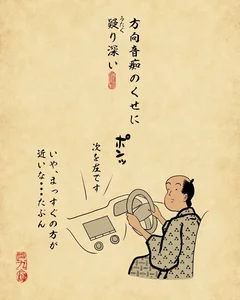 方向音痴のくせに
疑り深い
うたぐ
ポンッ
次を左です
いや、まっすぐの方が
近いな・・・たぶん